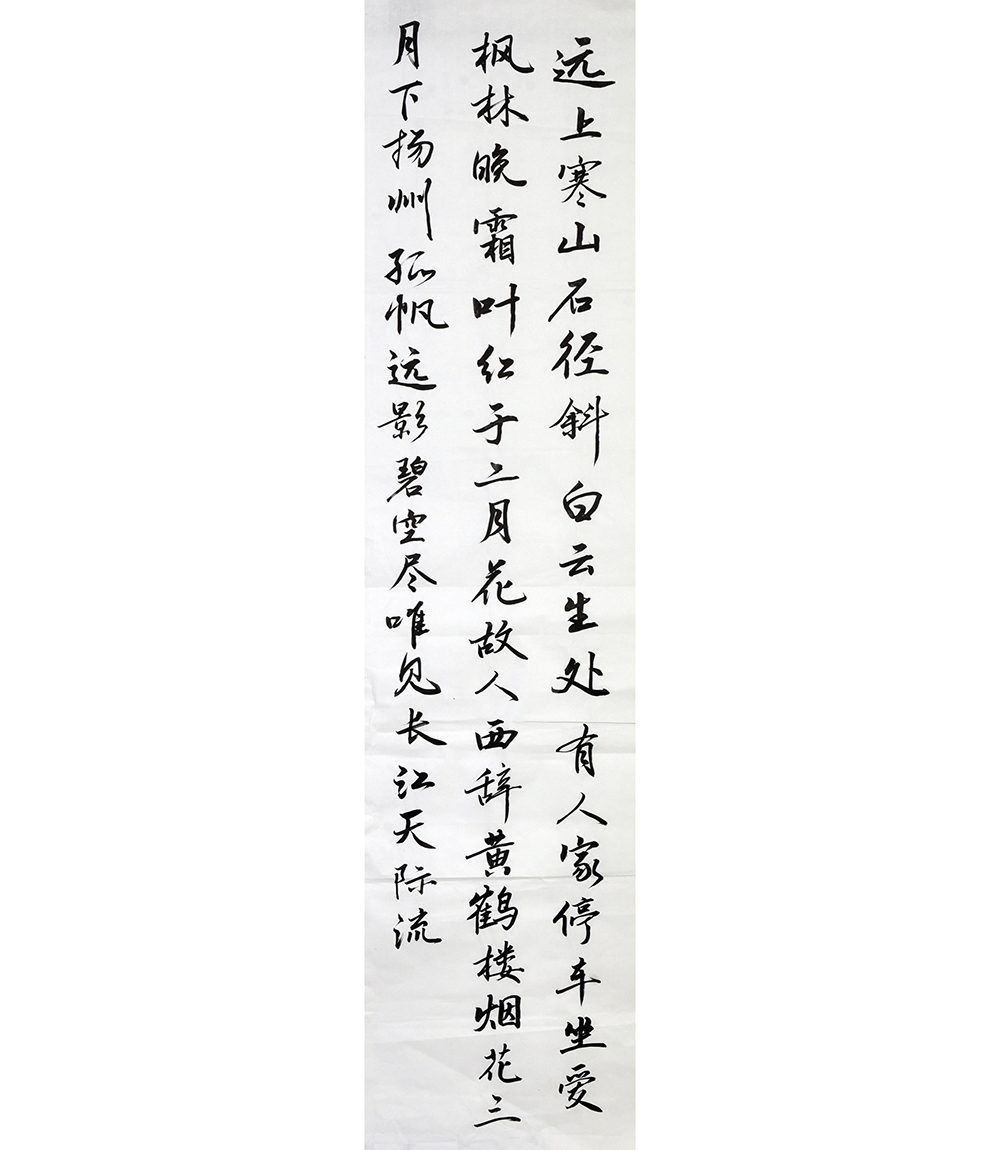 远上寒山石径斜白云生处有人家停车坐愛
枫林晚霜叶红于二月花故人西辞黄鹤楼烟花三
月下扬州孤帆远影碧空尽唯见长江天际流